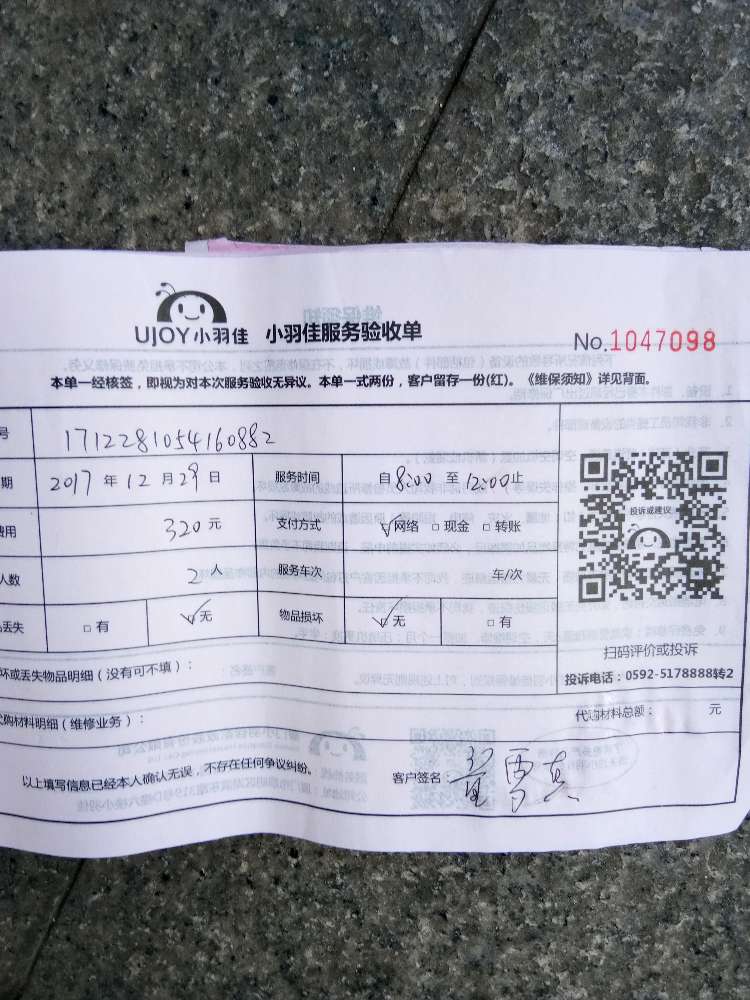 UJOY小羽佳 小羽佳服务验收单
No.1047098
本单一经核签，即视为对本次服务验收无异议。本单一式两份，客户留存一份(红)。《维保须知》详见背面。
号 1712281054160882
期 2017 年 12 月 29 日 服务时间 自 8:00 至 12:00 止
费用 320 元 支付方式 ☑网络 □现金 □转账
人数 2 人 服务车次 车/次
丢失 □有 ☑无 物品损坏 ☑无 □有
投诉或建议
扫码评价或投诉
投诉电话：0592-5178888转2
坏或丢失物品明细（没有可不填）：
代购材料明细（维修业务）：
代购材料总额： 元
以上填写信息已经本人确认无误，不存在任何争议纠纷。
客户签名：